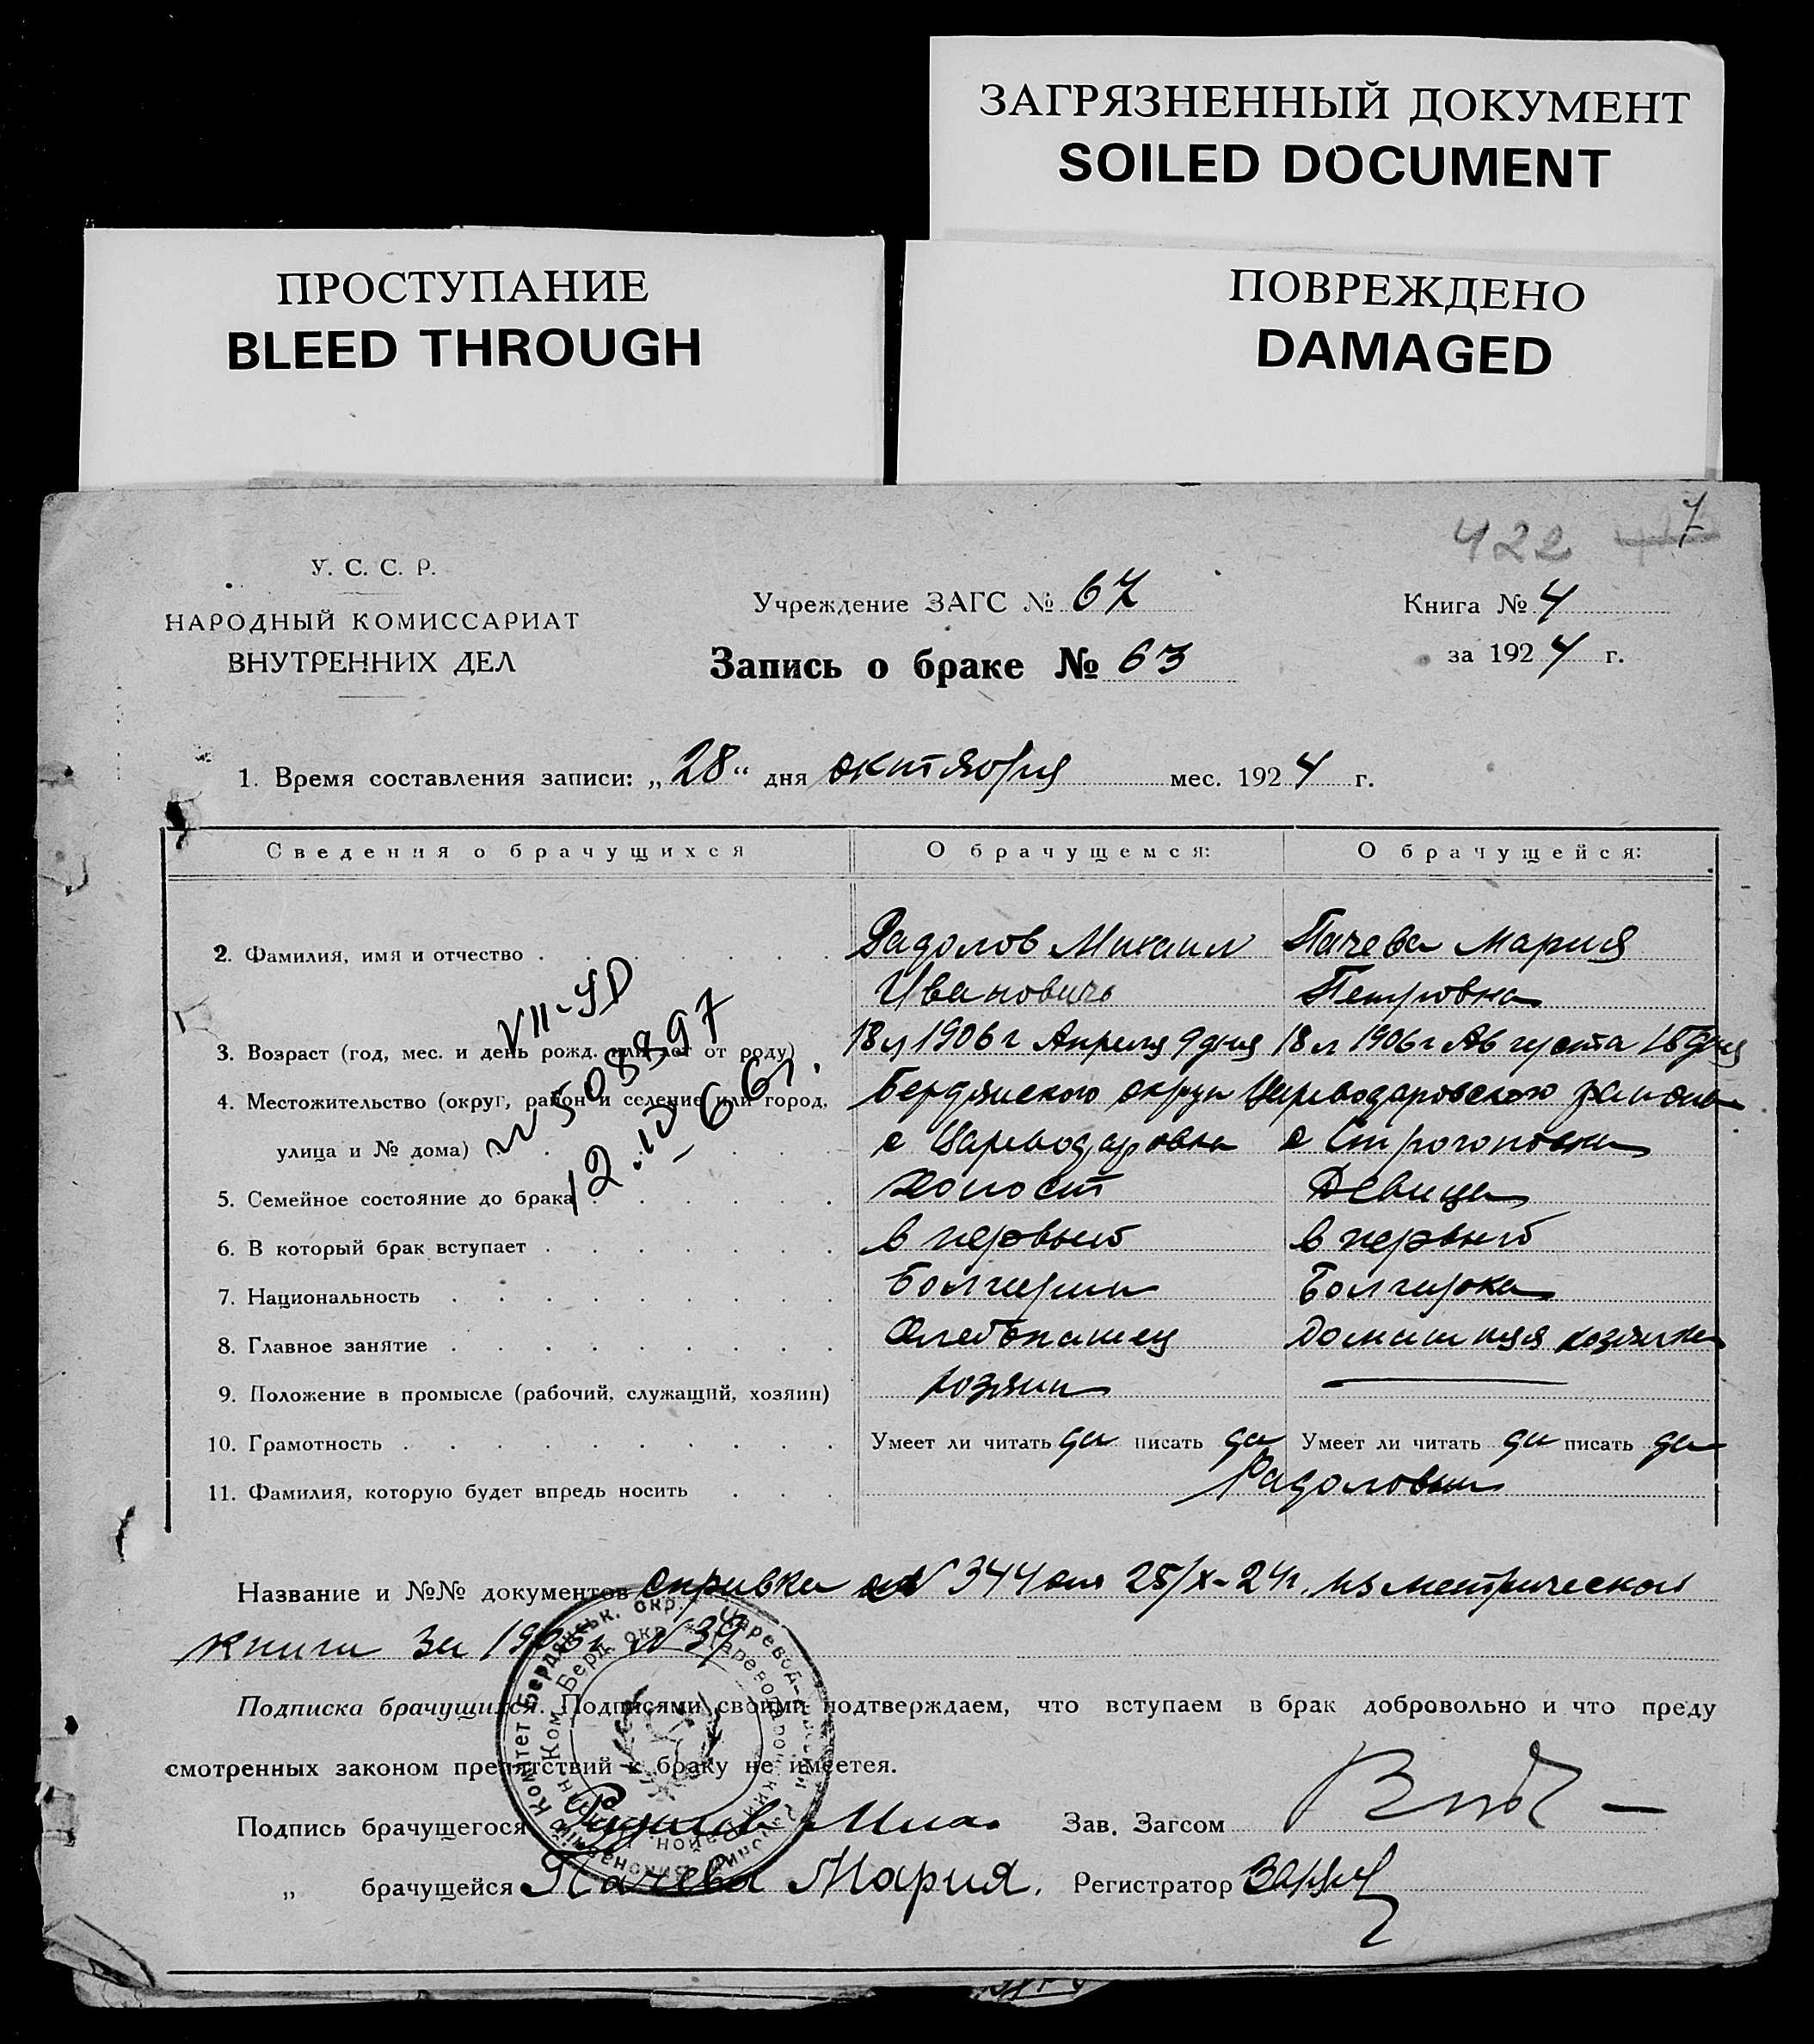 ЗАГРЯЗНЕННЫЙ ДОКУМЕНТ
SOILED DOCUMENT
ПРОСТУПАНИЕ
BLEED THROUGH
ПОВРЕЖДЕНО
DAMAGED
7
422
У. С. С. Р.
НАРОДНЫЙ КОМИССАРИАТ
ВНУТРЕННИХ ДЕЛ
Учреждение ЗАГС № 67
Запись о браке № 63
Книга № 4
за 1924 г.
1. Время составления записи: „28“ дня октября мес. 1924 г.
Сведения о брачущихся О брачущемся: О брачущейся:
2. Фамилия, имя и отчество Радолов Михаил Пачева Мария
Иванович Петровна
3. Возраст (год, мес. и день рожд. или лет от роду) 18 л 1906 г Апреля 9 дня 18 л 1906 г Августа 15 дня
4. Местожительство (округ, район и селение или город, Бердянского округа Цареводаровского района
улица и № дома) с Цареводаровка с Строгоновка
5. Семейное состояние до брака холост Девица
6. В который брак вступает в первый в первый
7. Национальность Болгарин Болгарка
8. Главное занятие Хлебопашец Домашняя хозяйка
9. Положение в промысле (рабочий, служащий, хозяин) хозяин —
10. Грамотность Умеет ли читать да писать да Умеет ли читать да писать да
11. Фамилия, которую будет впредь носить Радоловы
VII-ЯР
№ 508397
12.IV-66г.
Название и №№ документов справка № 344 от 25/X-24 г. из метрической
книги за 1906 г № 39
Подписка брачущихся. Подписями своими подтверждаем, что вступаем в брак добровольно и что преду
смотренных законом препятствий к браку не имеется.
Подпись брачущегося Радолов Мих. Зав. Загсом
„ брачущейся Пачева Мария. Регистратор